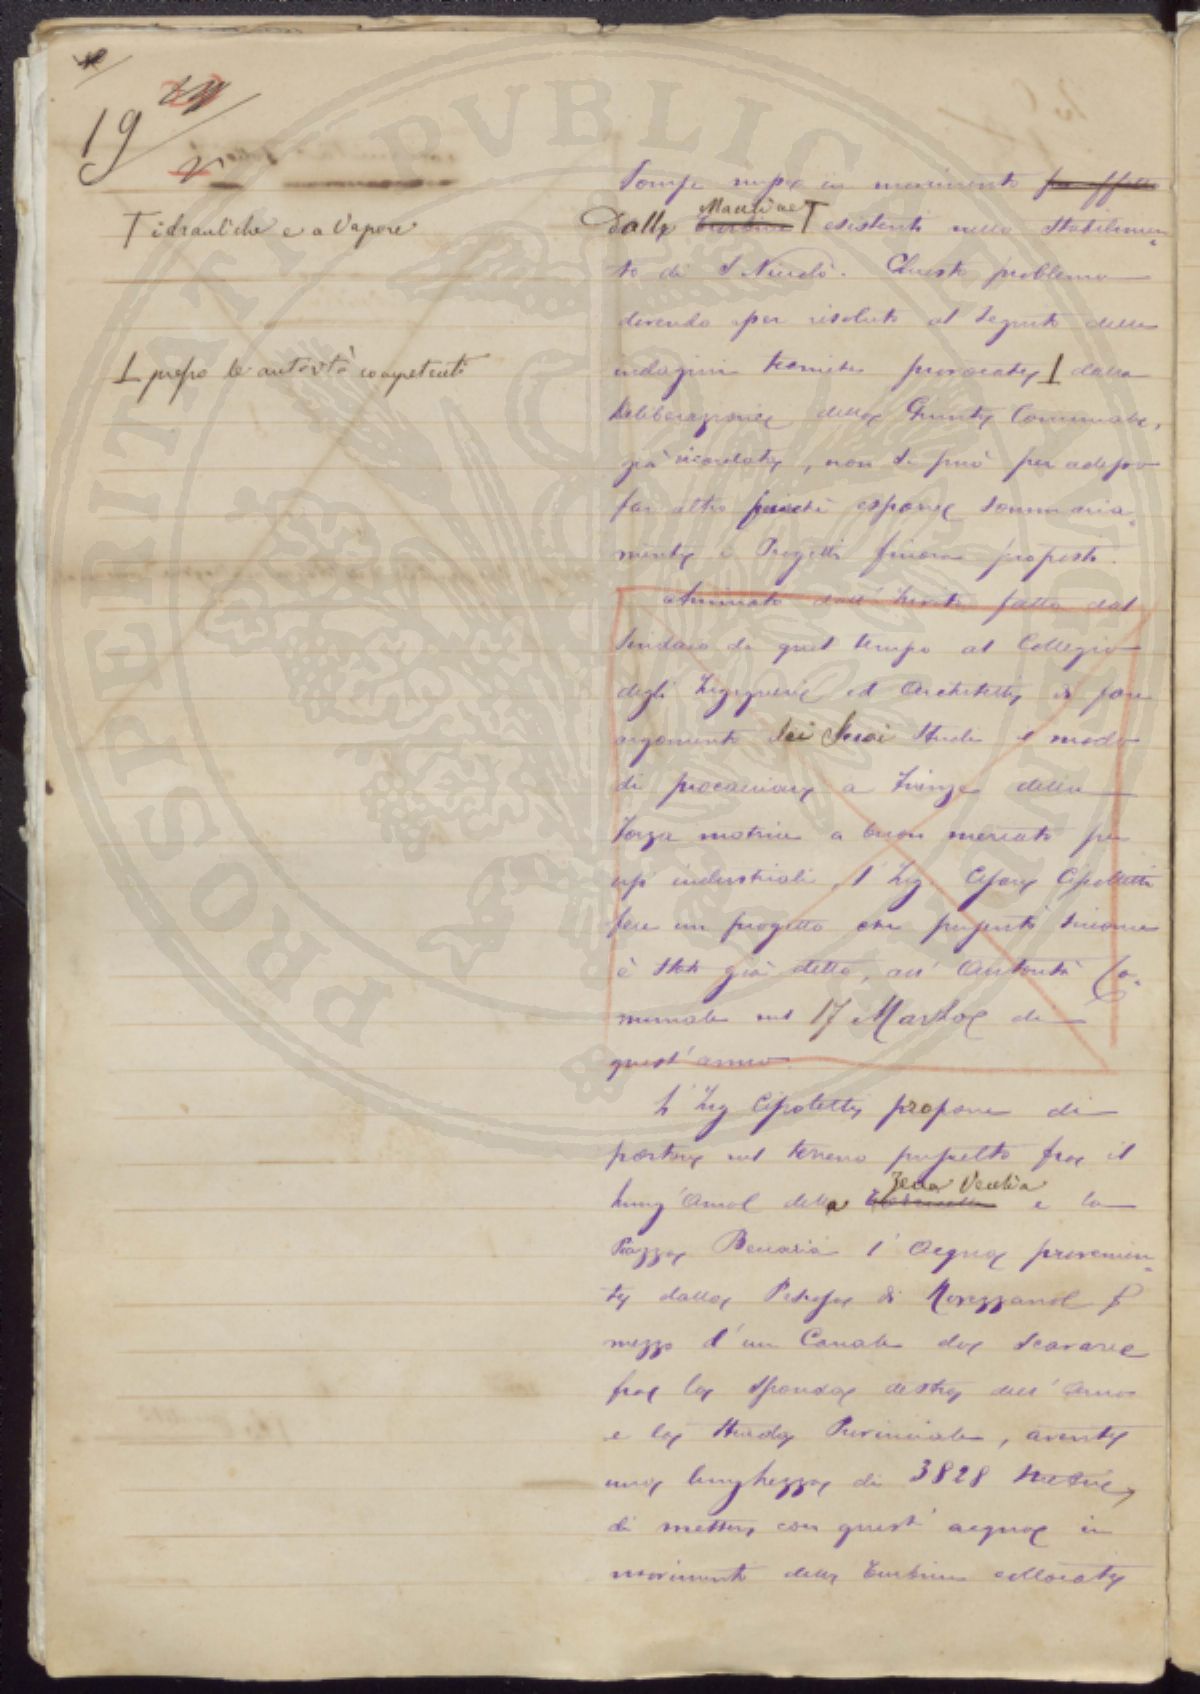 19
T idrauliche e a Vapore
⊥ presso le autorità competenti
Pompe messe in movimento per effetto
Dalle turbine Macchine T esistenti nello Stabilimen=
to di S. Niccolò. Questo problema
dovendo esser risoluto al seguito delle
indagini tecniche provocate ⊥ dalla
deliberazione della Giunta Comunale,
già ricordata, non si può per adesso
far altro fuorchè esporre sommaria=
mente i Progetti finora proposti.
Animato dall'Invito fatto dal
Sindaco di quel tempo al Collegio
degli Ingegneri ed Architetti, di fare
argomento dei suoi Studi il modo
di procacciare a Firenze della
Forza motrice a buon mercato per
usi industriali, l'Ing. Cesare Cipolletti
fece un progetto che presentò siccome
è stato già detto, all'Autorità Co=
munale nel 17 Marzo di
quest'anno.
L'Ing Cipolletti propone di
portare nel terreno prospetto fra il
Lung'Arno della Zecca Vecchia e la
Piazza Beccaria l'Acqua provenien=
te dalla Pescaja di Rovezzano p
mezzo d'un Canale da scavare
fra la Sponda destra dell'Arno
e la Strada Provinciale, avente
una lunghezza di 3828 metri,
di mettere con quest'acqua in
movimento delle Turbine collocate